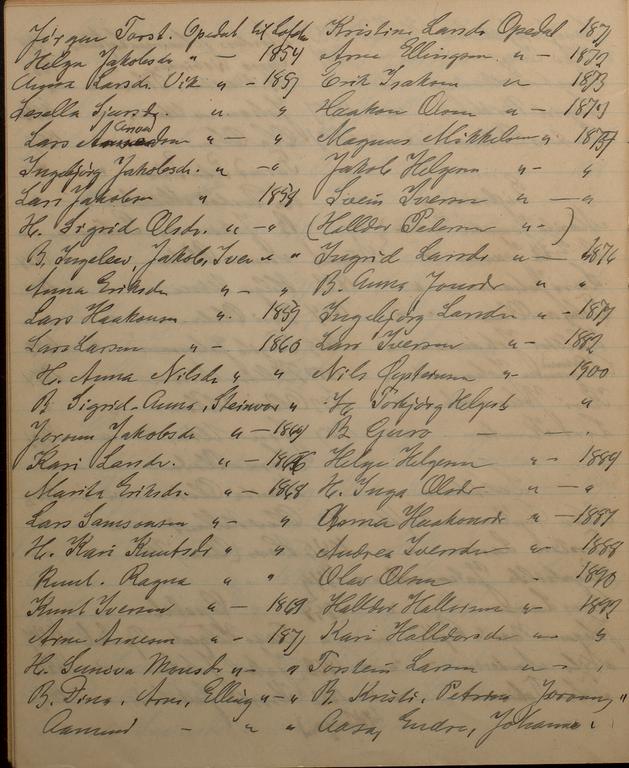 Jørgen Torst. Opedal til Lofth
Helga Jakobsdr " — 1854
Anna Larsdr. Vik " - 1857
Sjursdr. " "
Lars Amundsen " — "
Ingebjørg Jakobsdr. " — "
Lars Jakobsen " 1859
H. Sigrid Olsdr. " - "
B. Ingeleiv, Jakob, Iver " "
Anna Eriksdr " - "
Lars Haakonsen " 1859
Lars Larsen " - 1860
H. Anna Nilsdr " "
B Sigrid, Anna, Steinvor "
Jorunn Jakobsdr " - 1864
Kari Larsdr. " - 1866
Marita Eriksdr. " - 1868
Lars Samsonsen " - "
H. Kari Knutsdr " "
Knut. Ragna " "
Knut Iversen " - 1869
Arne Arnesen " - 1871
H. Sunniva Monsdr " - "
B. Dina, Arne, Elling " - "
Aamund - " "
Kristine Larsdr Opedal 1871
Arne Ellingsen " - 1872
Erik Isaksen " 1873
Haakon Olsen " - 1874
Magnus Mikkelsen " 1874
Jakob Helgesen " - "
Svein Iversen " — "
(Halldor Petersen " - )
Ingrid Larsdr " — 1876
B. Anna Jonsdr " "
Ingebjørg Larsdr " - 1879
Lars Iversen " - 1882
Nils " - 1900
H. Torbjørg Helgesd "
B Guro — — .
Helge Helgesen " - 1889
H. Inga Olsdr " — "
Anna Haakonsdr " — 1887
Andrea Iversdr " 1888
Olav Olsen - 1890
Halldor " - 1892
Kari Halldorsdr " - "
Torstein Larsen " - .
B. Kristi, Petrina Jorunn, "
Aasa, Endre, Johanna .